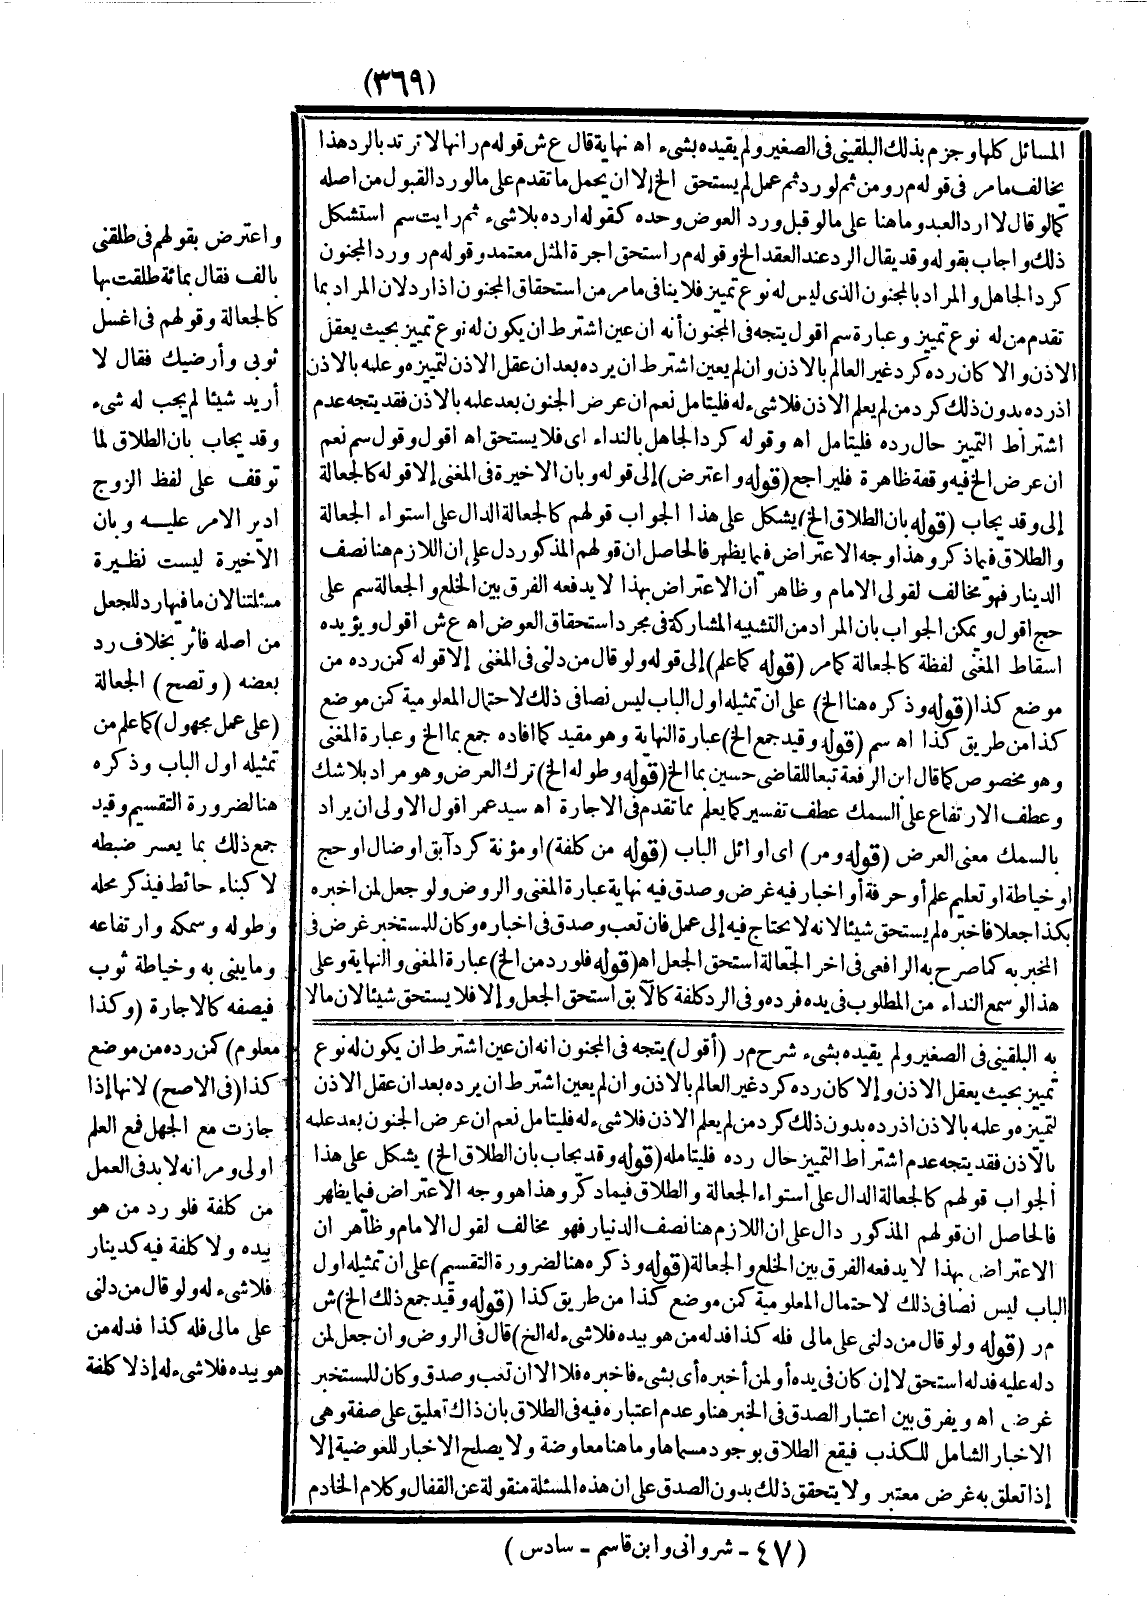 (٣٦٩)
المسائل كلها وجزم بذلك البلقيني في الصغير ولم يقيده بشيء اه نهاية قال ع ش قوله م ر انها لا ترتد بالرد هذا
يخالف ما مر في قوله م ر ومن ثم لو رد ثم عمل لم يستحق الخ إلا ان يحمل ما تقدم على ما لو رد القبول من اصله
كما لو قال لا ارد العبد وما هنا على ما لو قبل ورد العوض وحده كقوله ارده بلا شيء ثم رايت سم استشكل
ذلك واجاب بقوله وقد يقال الرد عند العقد الخ وقوله م ر استحق اجرة المثل معتمد وقوله م ر ورد المجنون
كرد الجاهل والمراد بالمجنون الذي ليس له نوع تمييز فلا ينافى ما مر من استحقاق المجنون اذا رد لان المراد بما
تقدم من له نوع تمييز وعبارة سم اقول يتجه في المجنون أنه ان عين اشترط ان يكون له نوع تمييز بحيث يعقل
الاذن والا كان رده كرد غير العالم بالاذن وان لم يعين اشترط ان يرده بعد ان عقل الاذن لتمييزه وعلمه بالاذن
اذ رده بدون ذلك كرد من لم يعلم الاذن فلا شيء له فليتامل نعم ان عرض الجنون بعد علمه بالاذن فقد يتجه عدم
اشتراط التمييز حال رده فليتامل اه وقوله كرد الجاهل بالنداء اى فلا يستحق اه اقول وقول سم نعم
ان عرض الخ فيه وقفة ظاهرة فليراجع (قوله واعترض) إلى قوله وبان الاخيرة في المغنى إلا قوله كالجعالة
إلى وقد يجاب (قوله بان الطلاق الخ) يشكل على هذا الجواب قولهم كالجعالة الدال على استواء الجعالة
والطلاق فيما ذكر وهذا وجه الاعتراض فيما يظهر فالحاصل ان قولهم المذكور دل على ان اللازم هنا نصف
الدينار فهو مخالف لقولى الامام وظاهر ان الاعتراض بهذا لا يدفعه الفرق بين الخلع والجعالة سم على
حج اقول ويمكن الجواب بان المراد من التشبيه المشاركة في مجرد استحقاق العوض اه ع ش اقول ويؤيده
اسقاط المغنى لفظة كالجعالة كما مر (قوله كما علم) إلى قوله ولو قال من دلنى في المغنى إلا قوله كمن رده من
موضع كذا (قوله وذكره هنا الخ) على ان تمثيله اول الباب ليس نصا في ذلك لاحتمال المعلومية كمن موضع
كذا من طريق كذا اه سم (قوله وقيد جمع الخ) عبارة النهاية وهو مقيد كما افاده جمع بما الخ وعبارة المغنى
وهو مخصوص كما قال ابن الرفعة تبعا للقاضى حسين بما الخ (قوله وطوله الخ) ترك العرض وهو مراد بلا شك
وعطف الارتفاع على السمك عطف تفسير كما يعلم مما تقدم في الاجارة اه سيد عمر اقول الاولى ان يراد
بالسمك معنى العرض (قوله ومر) اى اوائل الباب (قوله من كلفة) او مؤنة كرد آبق او ضال او حج
او خياطة او تعليم علم أو حرفة أو اخبار فيه غرض وصدق فيه نهاية عبارة المغنى والروض ولو جعل لمن اخبره
بكذا جعلا فاخبره لم يستحق شيئا لانه لا يحتاج فيه إلى عمل فان تعب وصدق في اخباره وكان للمستخبر غرض في
المخبر به كما صرح به الرافعى في اخر الجعالة استحق الجعل اه (قوله فلو رد من الخ) عبارة المغنى والنهاية وعلى
هذا لو سمع النداء من المطلوب في يده فرده وفي الرد كلفة كالآبق استحق الجعل وإلا فلا يستحق شيئا لان ما لا
به البلقيني في الصغير ولم يقيده بشيء شرح م ر (أقول) يتجه في المجنون انه ان عين اشترط ان يكون له نوع
تمييز بحيث يعقل الاذن وإلا كان رده كرد غير العالم بالاذن وان لم يعين اشترط ان يرده بعد ان عقل الاذن
لتمييزه وعلمه بالاذن اذ رده بدون ذلك كرد من لم يعلم الاذن فلا شيء له فليتامل نعم ان عرض الجنون بعد علمه
بالاذن فقد يتجه عدم اشتراط التمييز حال رده فليتامله (قوله وقد يجاب بان الطلاق الخ) يشكل على هذا
الجواب قولهم كالجعالة الدال على استواء الجعالة والطلاق فيما ذكر وهذا هو وجه الاعتراض فيما يظهر
فالحاصل ان قولهم المذكور دال على ان اللازم هنا نصف الدنيار فهو مخالف لقول الامام وظاهر ان
الاعتراض بهذا لا يدفعه الفرق بين الخلع والجعالة (قوله وذكره هنا لضرورة التقسيم) على ان تمثيله اول
الباب ليس نصا في ذلك لاحتمال المعلومية كمن موضع كذا من طريق كذا (قوله وقيد جمع ذلك الخ) ش
م ر (قوله ولو قال من دلنى على مالى فله كذا فدله من هو بيده فلا شيء له الخ) قال في الروض وان جعل لمن
دله عليه فدله استحق لا إن كان في يده أو لمن أخبره أى بشيء فاخبره فلا الا ان تعب وصدق وكان للمستخبر
غرض اه ويفرق بين اعتبار الصدق في الخبر هنا وعدم اعتباره فيه في الطلاق بان ذاك تعليق على صفة وهى
الاخبار الشامل للكذب فيقع الطلاق بوجود مسماها وما هنا معاوضة ولا يصلح الاخبار للعوضية إلا
إذا تعلق به غرض معتبر ولا يتحقق ذلك بدون الصدق على ان هذه المسئلة منقولة عن القفال وكلام الخادم
واعترض بقولهم في طلقنى
بالف فقال بمائة طلقت بها
كالجعالة وقولهم في اغسل
ثوبى وأرضيك فقال لا
أريد شيئا لم يجب له شيء
وقد يجاب بان الطلاق لما
توقف على لفظ الزوج
ادير الامر عليه وبان
الاخيرة ليست نظيرة
مسئلتنا لان ما فيها رد للجعل
من اصله فاثر بخلاف رد
بعضه (وتصح) الجعالة
(على عمل مجهول) كما علم من
تمثيله اول الباب وذكره
هنا لضرورة التقسيم وقيد
جمع ذلك بما يعسر ضبطه
لا كبناء حائط فيذكر محله
وطوله وسمكه وارتفاعه
وما يبنى به وخياطة ثوب
فيصفه كالاجارة (وكذا
معلوم) كمن رده من موضع
كذا (في الاصح) لانها إذا
جازت مع الجهل فمع العلم
اولى ومر انه لا بد في العمل
من كلفة فلو رد من هو
بيده ولا كلفة فيه كدينار
فلا شيء له ولو قال من دلنى
على مالى فله كذا فدله من
هو بيده فلا شيء له إذ لا كلفة
(٤٧ - شروانى وابن قاسم - سادس)